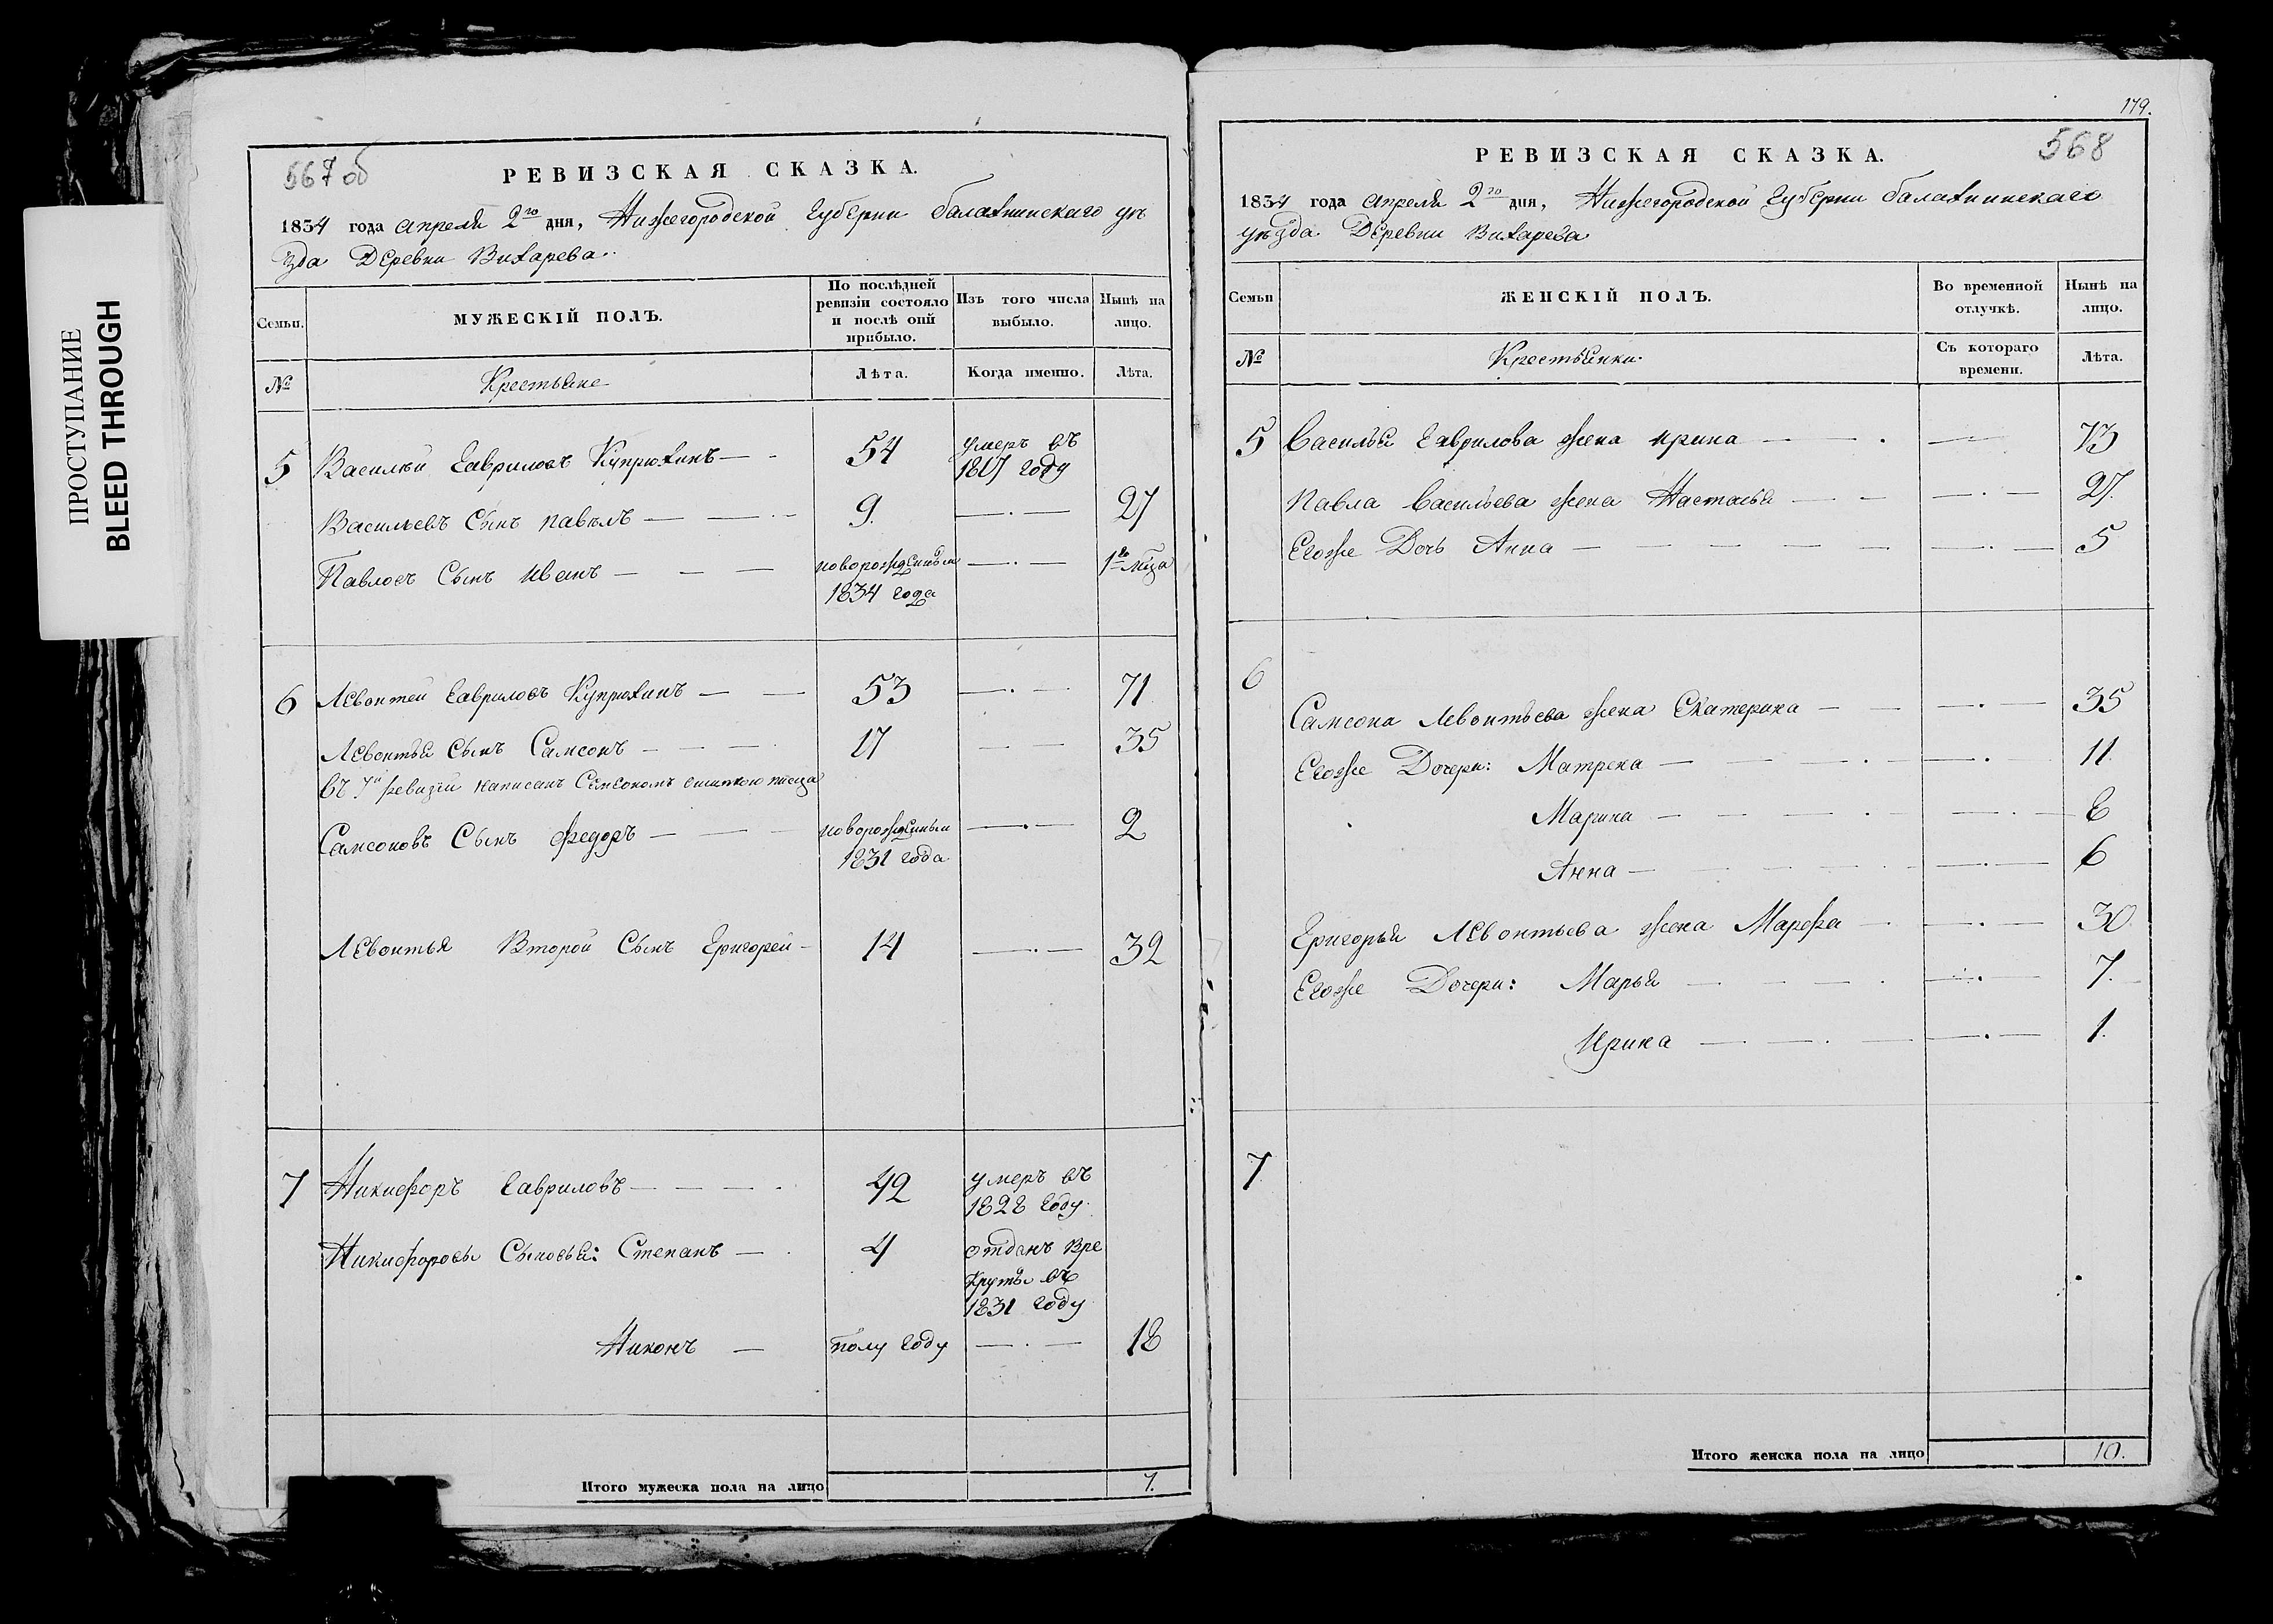 ПРОСТУПАНИЕ
BLEED THROUGH
567 об
РЕВИЗСКАЯ СКАЗКА.
1834 года апреля 2го дня, Нижегородской Губернии балахнинскаго уѣ
зда Деревни Вихарева
Семьи.
МУЖЕСКІЙ ПОЛЪ.
По послѣдней ревизіи состояло и послѣ оной прибыло.
Изъ того числа выбыло.
Нынѣ на лицо.
№
Крестьяне
Лѣта.
Когда именно.
Лѣта.
5 Василѣй Гавриловъ Купрюхинъ 54 умеръ въ
1817 году
Васильевъ Сынъ павелъ 9. 27
Павловъ Сынъ иванъ новорожденный 1го мѣца
1834 года
6 Левонтей Гавриловъ Купрюхинъ 53 71
Левонтья Сынъ Самсонъ 17 35
въ 7й ревизіи написанъ Семеономъ ошипкою писца
Самсоновъ Сынъ Федоръ новорожденный 2
1831 года
Левонтья Второй Сынъ Григорей 14 32
7 Никифоръ Гавриловъ 42 умеръ въ
1828 году
Никифоровы Сыновья: Степанъ 4 отданъ вре
круты въ
1831 году
Никонъ полу году 18
Итого мужеска пола на лицо 7.
179.
568
РЕВИЗСКАЯ СКАЗКА.
1834 года апреля 2го дня, Нижегородской Губернии балахнинскаго
уѣзда Деревни Вихарева
Семьи
ЖЕНСКІЙ ПОЛЪ.
Во временной отлучкѣ.
Нынѣ на лицо.
№
Крестьянки.
Съ котораго времени.
Лѣта.
5 Василья Гаврилова жена ирина 73
Павла Васильева жена Настасья 27.
Егоже Дочь Анна 5
6
Самсона Левонтьева жена Екатерина 35
Егоже Дочери: Матрена 11
Марина 8
Анна 6
Григорья Левонтьева жена Марфа 30.
Егоже Дочери: Марья 7.
Ирина 1.
7
Итого женска пола на лицо 10.